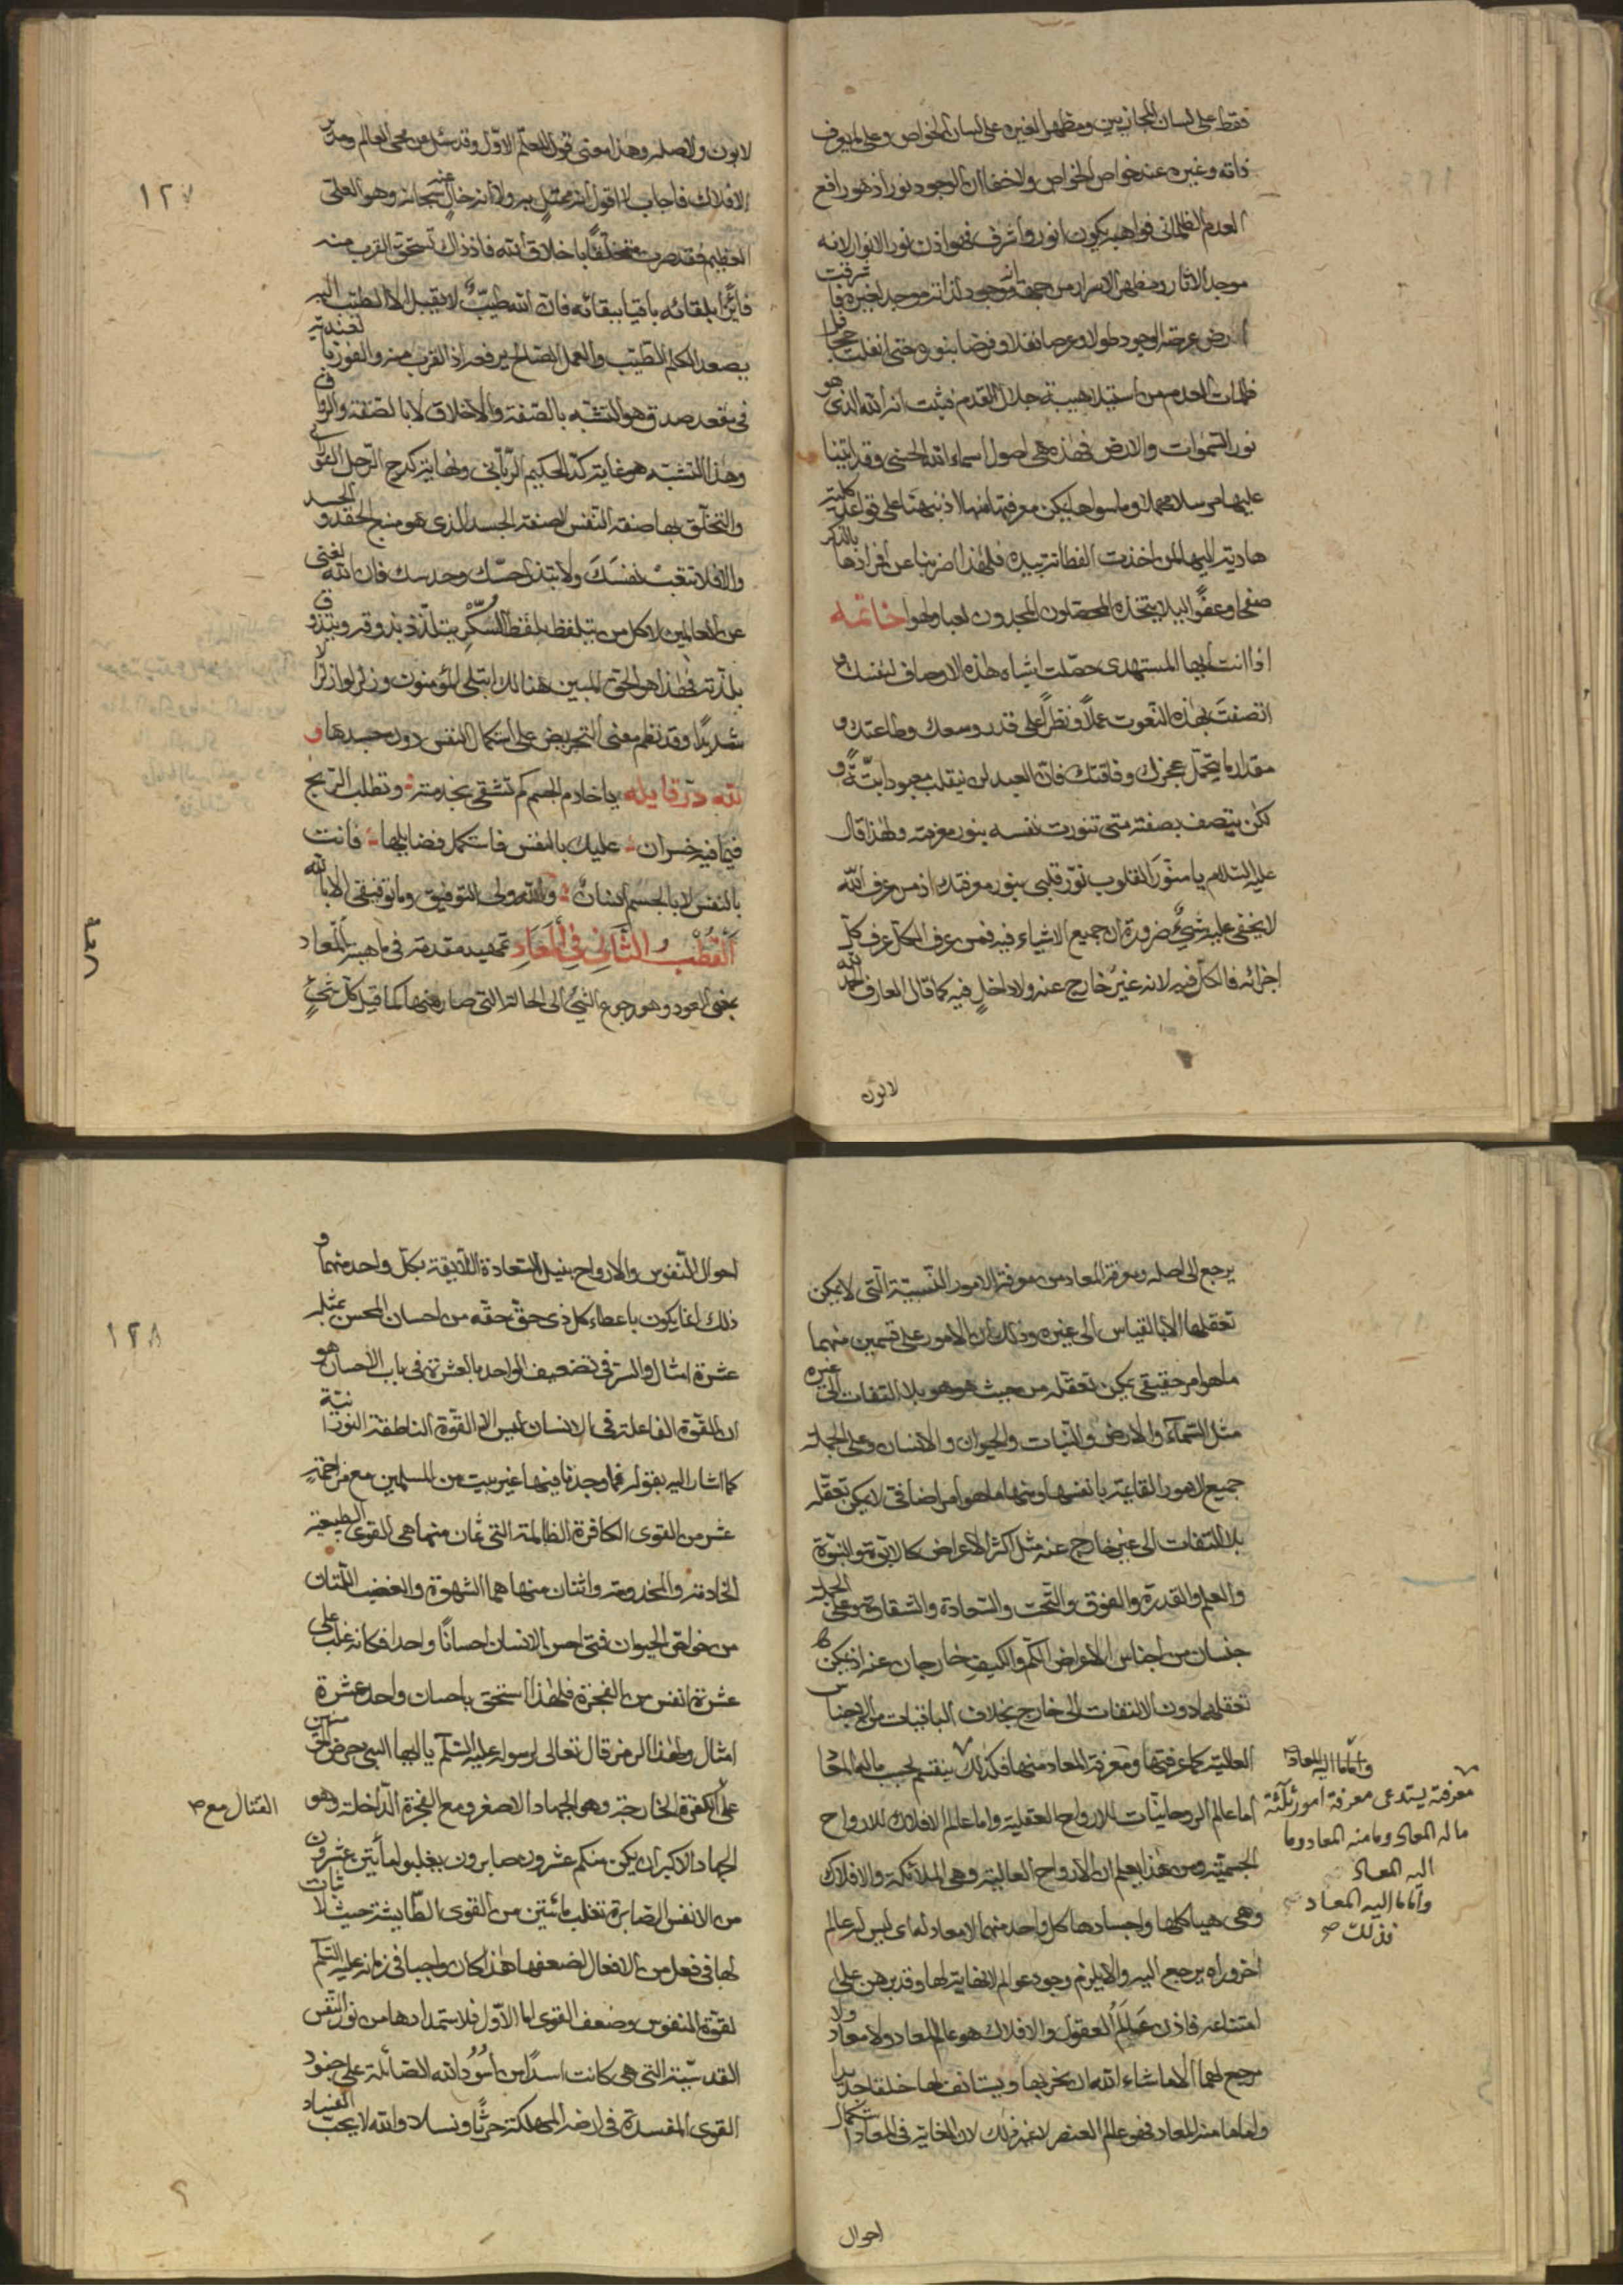 فقط على لسان المجازيين ومظهرا لغيره على لسان الخواص وعلى المعروف
ذاته وغيره عند خواص الخواص ولا خفا ان الوجود نور اذ هو رافع
العدم الظلماني فواهبه يكون انور واشرف فهو اذن نور الانوار لانه
موجد الاثار ومظهر الاسرار من جهة انه موجود لذاته موجد لغيره فاشرقت
ارض عرصة الوجود طولا وعرضا نفلا وفرضا بنوره حتى انفلت
ظلمات العدم من استيلاء هيبة جلال القدم فثبت انه الله الذي هو
نور السموات والارض فهذه هي اصول اسماء الله الحسنى وقد اتينا
عليها مرسلا مهملا وما سواها يمكن معرفتها منها لاذ نبهنا على قواعد كلية
هادية اليها لمن اخذت الفطانة بيده فلهذا اضربنا عن افرادها بالذكر
صفحا وعفوا لئلا يتخذه المحصلون المجدون لعبا ولهوا خاتمة
اذا انت ايها المستهدى حصلت اشباه هذه الاوصاف لنفسك و
اتصفت بهذه النعوت عملا ونظرا على قدر وسعك وطاعتك و
مقدار ما يتحمل عجزك وفاقتك فان العبد لن ينقلب معبودا بتة و
لكن يتصف بصفته متى تنورت نفسه بنور معرفته ولهذا قال
عليه السلام يا منور القلوب نور قلبي بنور معرفتك اذ من عرف الله
لا يخفى عليه شيء ضرورة ان جميع الاشياء فيه فمن عرف الكل عرف كل
اجزائه فالكل فيه لانه غير خارج عنه ولا داخل فيه كما قال العارف الحمد لله
لا لون
١٢٧
لا بون ولا صلة وهذا معنى قول المعلم الاول وقد سئل عن محيي العالم ومدبر
الافلاك فاجاب لا اقول انه ممتثل به ولا انه خال عنه سبحانه وهو العلي
العظيم فقد صرت متخلقا باخلاق الله فاذ ذاك تستحق القرب منه
فائزا بلقائه باقيا ببقائه فان الله طيب لا يقبل الا الطيب اليه
يصعد الكلم الطيب والعمل الصالح يرفعه اذ القرب منه والفوز بالعندية
في مقعد صدق هو التشبه بالصفة والاخلاق لا بالصفة والرواق
وهذا التشبه هو غاية كد الحكيم الرباني ونهاية كدح الرجل القرآني
والتخلق بها صفة النفس لا صفة الجسد الذي هو منبع الحقد والحسد
والا فلا تتعب نفسك ولا تبتذل حسك وحدسك فان الله لغني
عن العالمين لا كل من يتلفظ بلفظ السكر يتلذذ بذوقه ويتذوق
بلذته فهذا هو الحق المبين هنالك ابتلي المؤمنون وزلزلوا زلزالا
شديدا وقد نظم معنى التحريض على استكمال النفس دون جسدها و
لله در قايله يا خادم الجسم كم تشقى بخدمته وتطلب الربح
فيما فيه خسران عليك بالنفس فاستكمل فضايلها فانت
بالنفس لا بالجسم انسان والله ولي التوفيق وما توفيقي الا بالله
القطب الثاني في المعاد تمهيد مقدمة في ماهية المعاد
بمعنى العود وهو رجوع الشيء الى الحالة التي صار عنها كما قيل كل شيء
يرجع الى اصله ومعرفة المعاد من معرفة الامور النسبية التي لا يمكن
تعقلها الا بالقياس الى غيره وذلك ان الامور على قسمين منهما
ما هو امر حقيقي يمكن تعقله من حيث هو هو بلا التفات الى غيره
مثل السماء والارض والنبات والحيوان والانسان وعلى الجملة
جميع الامور القائمة بانفسها ومنها ما هو امر اضافي لا يمكن تعقله
بلا التفات الى غير خارج عنه مثل اكثر الاعراض كالابوة والبنوة
والعلم والقدرة والفوق والتحت والسعادة والشقاوة وعلى الجملة
جنسان من اجناس الاعراض الكم والكيف خارجان عنه اذ يمكن
تعقلهما دون الالتفات الى خارج بخلاف الباقيات من الاجناس
العالية كما عرفتها ومعرفة المعاد منها فكذلك ينقسم بحسب ما له المعاد
اما عالم الروحانيات للارواح العقلية واما عالم الافلاك للارواح
الجسمية ومن هذا يعلم ان الارواح العالية وهي الملائكة والافلاك
وهي هياكلها واجسادها كل واحد منهما لا معاد له اي ليس له عالم
اخر وراه يرجع اليه والا يلزم وجود عوالم لا نهاية لها وقد برهن على
امتناعه فاذن عالم العقول والافلاك هو عالم المعاد ولا معاد ولا
مرجع لهما الا ما شاء الله ان يخربها ويستانف لها خلقا جديدا
واما ما منه المعاد فهو عالم العنصر لا غير ذلك لان الغاية في المعاد استكمال
واما ما اليه المعاد
معرفة يستدعى معرفة امور ثلثة
ما له المعاد وما منه المعاد وما
اليه المعاد
واما ما اليه المعاد
فذلك صح
احوال
١٢٨
احوال النفوس والارواح بنيل السعادة اللايقة بكل واحد منهما و
ذلك انما يكون باعطاء كل ذي حق حقه من احسان المحسن بمثله
عشرة امثال والسر في تضعيف الواحد بالعشرة في باب الاحسان هو
ان القوة الفاعلة في الانسان ليس الا القوة الناطقة النورانية
كما اشار اليه بقوله فما وجدنا فيها غير بيت من المسلمين مع مزاحمة
عشر من القوى الكافرة الظالمة التي ثمان منها هي القوى الطبيعية
الخادمة والمخدومة واثنتان منها هما الشهوة والغضب اللتان
من خواص الحيوان فمتى احسن الانسان احسانا واحدا فكانه غلب على
عشرة انفس من الفجرة فلهذا استحق باحسان واحد عشرة
امثال ولهذا الرمز قال تعالى لرسوله عليه السلم يا ايها النبي حرض المؤمنين
على الكفرة الخارجة وهو الجهاد الاصغر ومع الفجرة الداخلة وهو
القتال مع صح
الجهاد الاكبر ان يكن منكم عشرون صابرون يغلبوا مأتين عشرون
من الانفس الصابرة تغلب مائتين من القوى الطايشة حيث لا ثبات
لها في فعل من الافعال لضعفها هذا كان واجبا في زمانه عليه السلم
لقوة النفوس وضعف القوى اما الاول فلاستمدادها من نور النفس
القدسية التي هي كانت اسدا من اسود الله الصائلة على جنود
القوى المفسدة في ارضه المهلكة حرثا ونسلا والله لا يحب الفساد